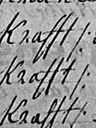 Krafft /:
Krafft /:
Krafft /: